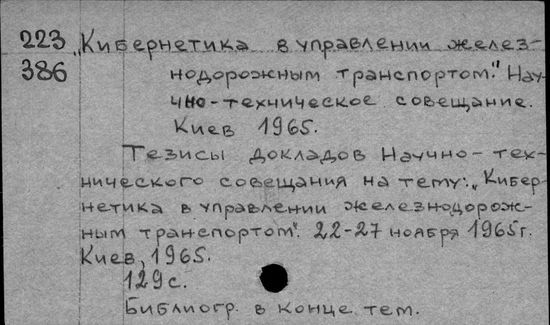 223 „Кибернетика в управлении желез-
386 нодорожным транспортом." Нау-
чно-техническое совещание.
Киев 1965.
Тезисы докладов Научно-тех-
нического совещания на тему: „Кибер-
нетика в управлении железнодорож-
ным транспортом". 22-27 ноября 1965 г.
Киев, 1965.
129 с.
Библиогр. в конце тем.